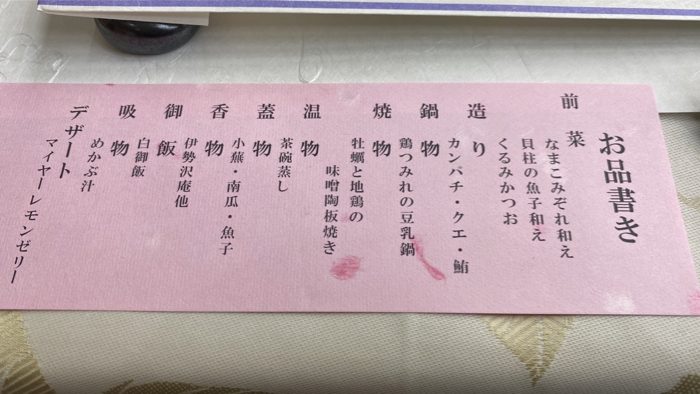 お品書き
前菜
なまこみぞれ和え
貝柱の魚子和え
くるみかつお
造り
カンパチ・クエ・鮪
鍋物
鶏つみれの豆乳鍋
焼物
牡蠣と地鶏の
味噌陶板焼き
温物
茶碗蒸し
蓋物
小蕪・南瓜・魚子
香物
伊勢沢庵他
御飯
白御飯
吸物
めかぶ汁
デザート
マイヤーレモンゼリー